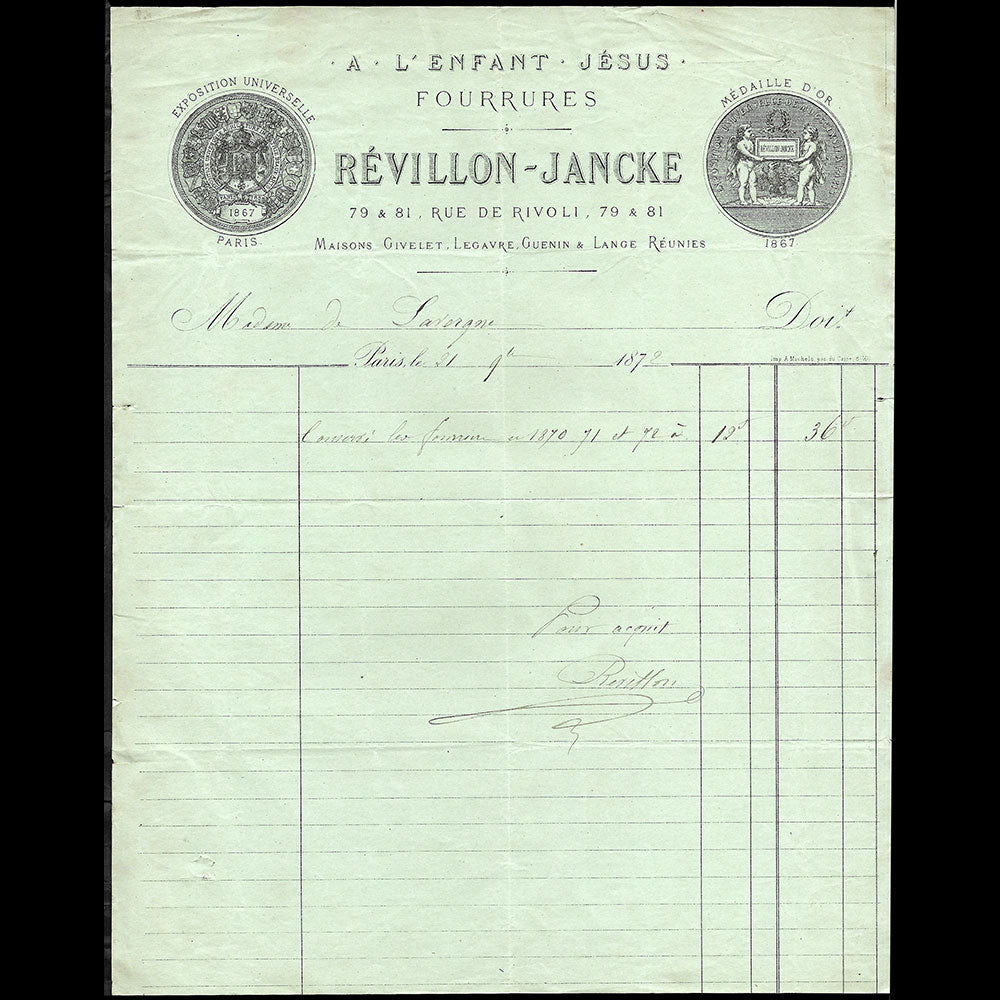 · A · L'ENFANT · JÉSUS ·
FOURRURES
EXPOSITION UNIVERSELLE
1867
PARIS.
RÉVILLON-JANCKE
MÉDAILLE D'OR
RÉVILLON-JANCKE
1867
79 & 81, RUE DE RIVOLI, 79 & 81
MAISONS GIVELET, LEGAVRE, GUENIN & LANGE RÉUNIES
Madame de Lavergne Doit
Paris, le 21 9bre 1872
Conservé les fourrures en 1870 71 et 72 à 12f 36f
Pour acquit
Révillon